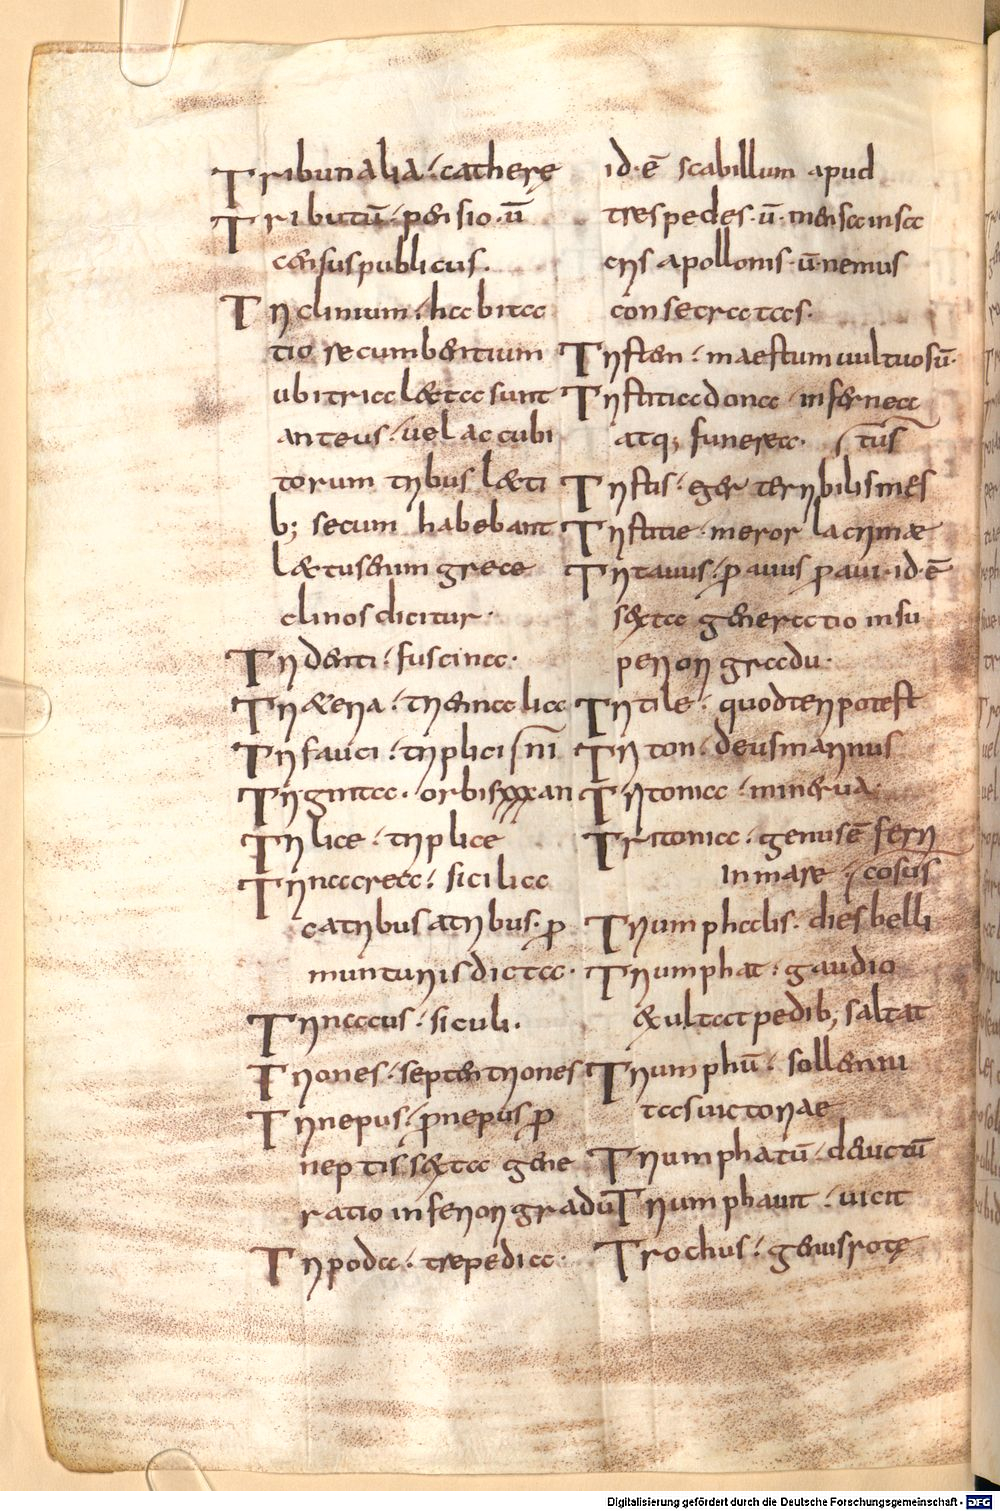 Tribunalia · cathere
Tributū · pensio · ū
censuspublicus.
Triclinium · habita
tio recumbentium
ubi tria lecta sunt
anteus · uel accubi
torum tribus lecti
b; secum habebant
lectusenim grece
clinos dicitur ·
Tridenti · fuscina ·
Trieterica · triennalia
Trifauci · triplici
Triginta · orbisxxxan
Trilice · triplice
Trinacrea · sicilia
catribus atribus · p
munturisdicta ·
Trinacus · siculi ·
Triones · septentriones
Trinepus · pnepus p
neptis sexta gene
ratio inferiorigradu
Tripoda · trepedica ·
id · ē scabillum apud
trespedes · ū · mensainsa
cris apollonis · ū · nemus
consecratas ·
Tristen · maestumuultuosū ·
Tristitiadona · inferna
atq; funerea · stus
Tristis · eger terribilismes
Tristitie · meror lacrimae
Tritauus · pauus paui · id · ē
sexta generatio insu
periori gradu ·
Tritile · quodteripotest
Triton · deusmarinus
Tritonia · minerua ·
Tritonia · genusē feri
inmare cosus
Triumphalis · dies belli
Triumphat · gaudio
exultat pedib; saltat
Triumphū · sollemni
tasuictoriae
Triumphatū · deuictū
Triumphauit · uicit
Trochus · genusrote
Digitalisierung gefördert durch die Deutsche Forschungsgemeinschaft - DFG